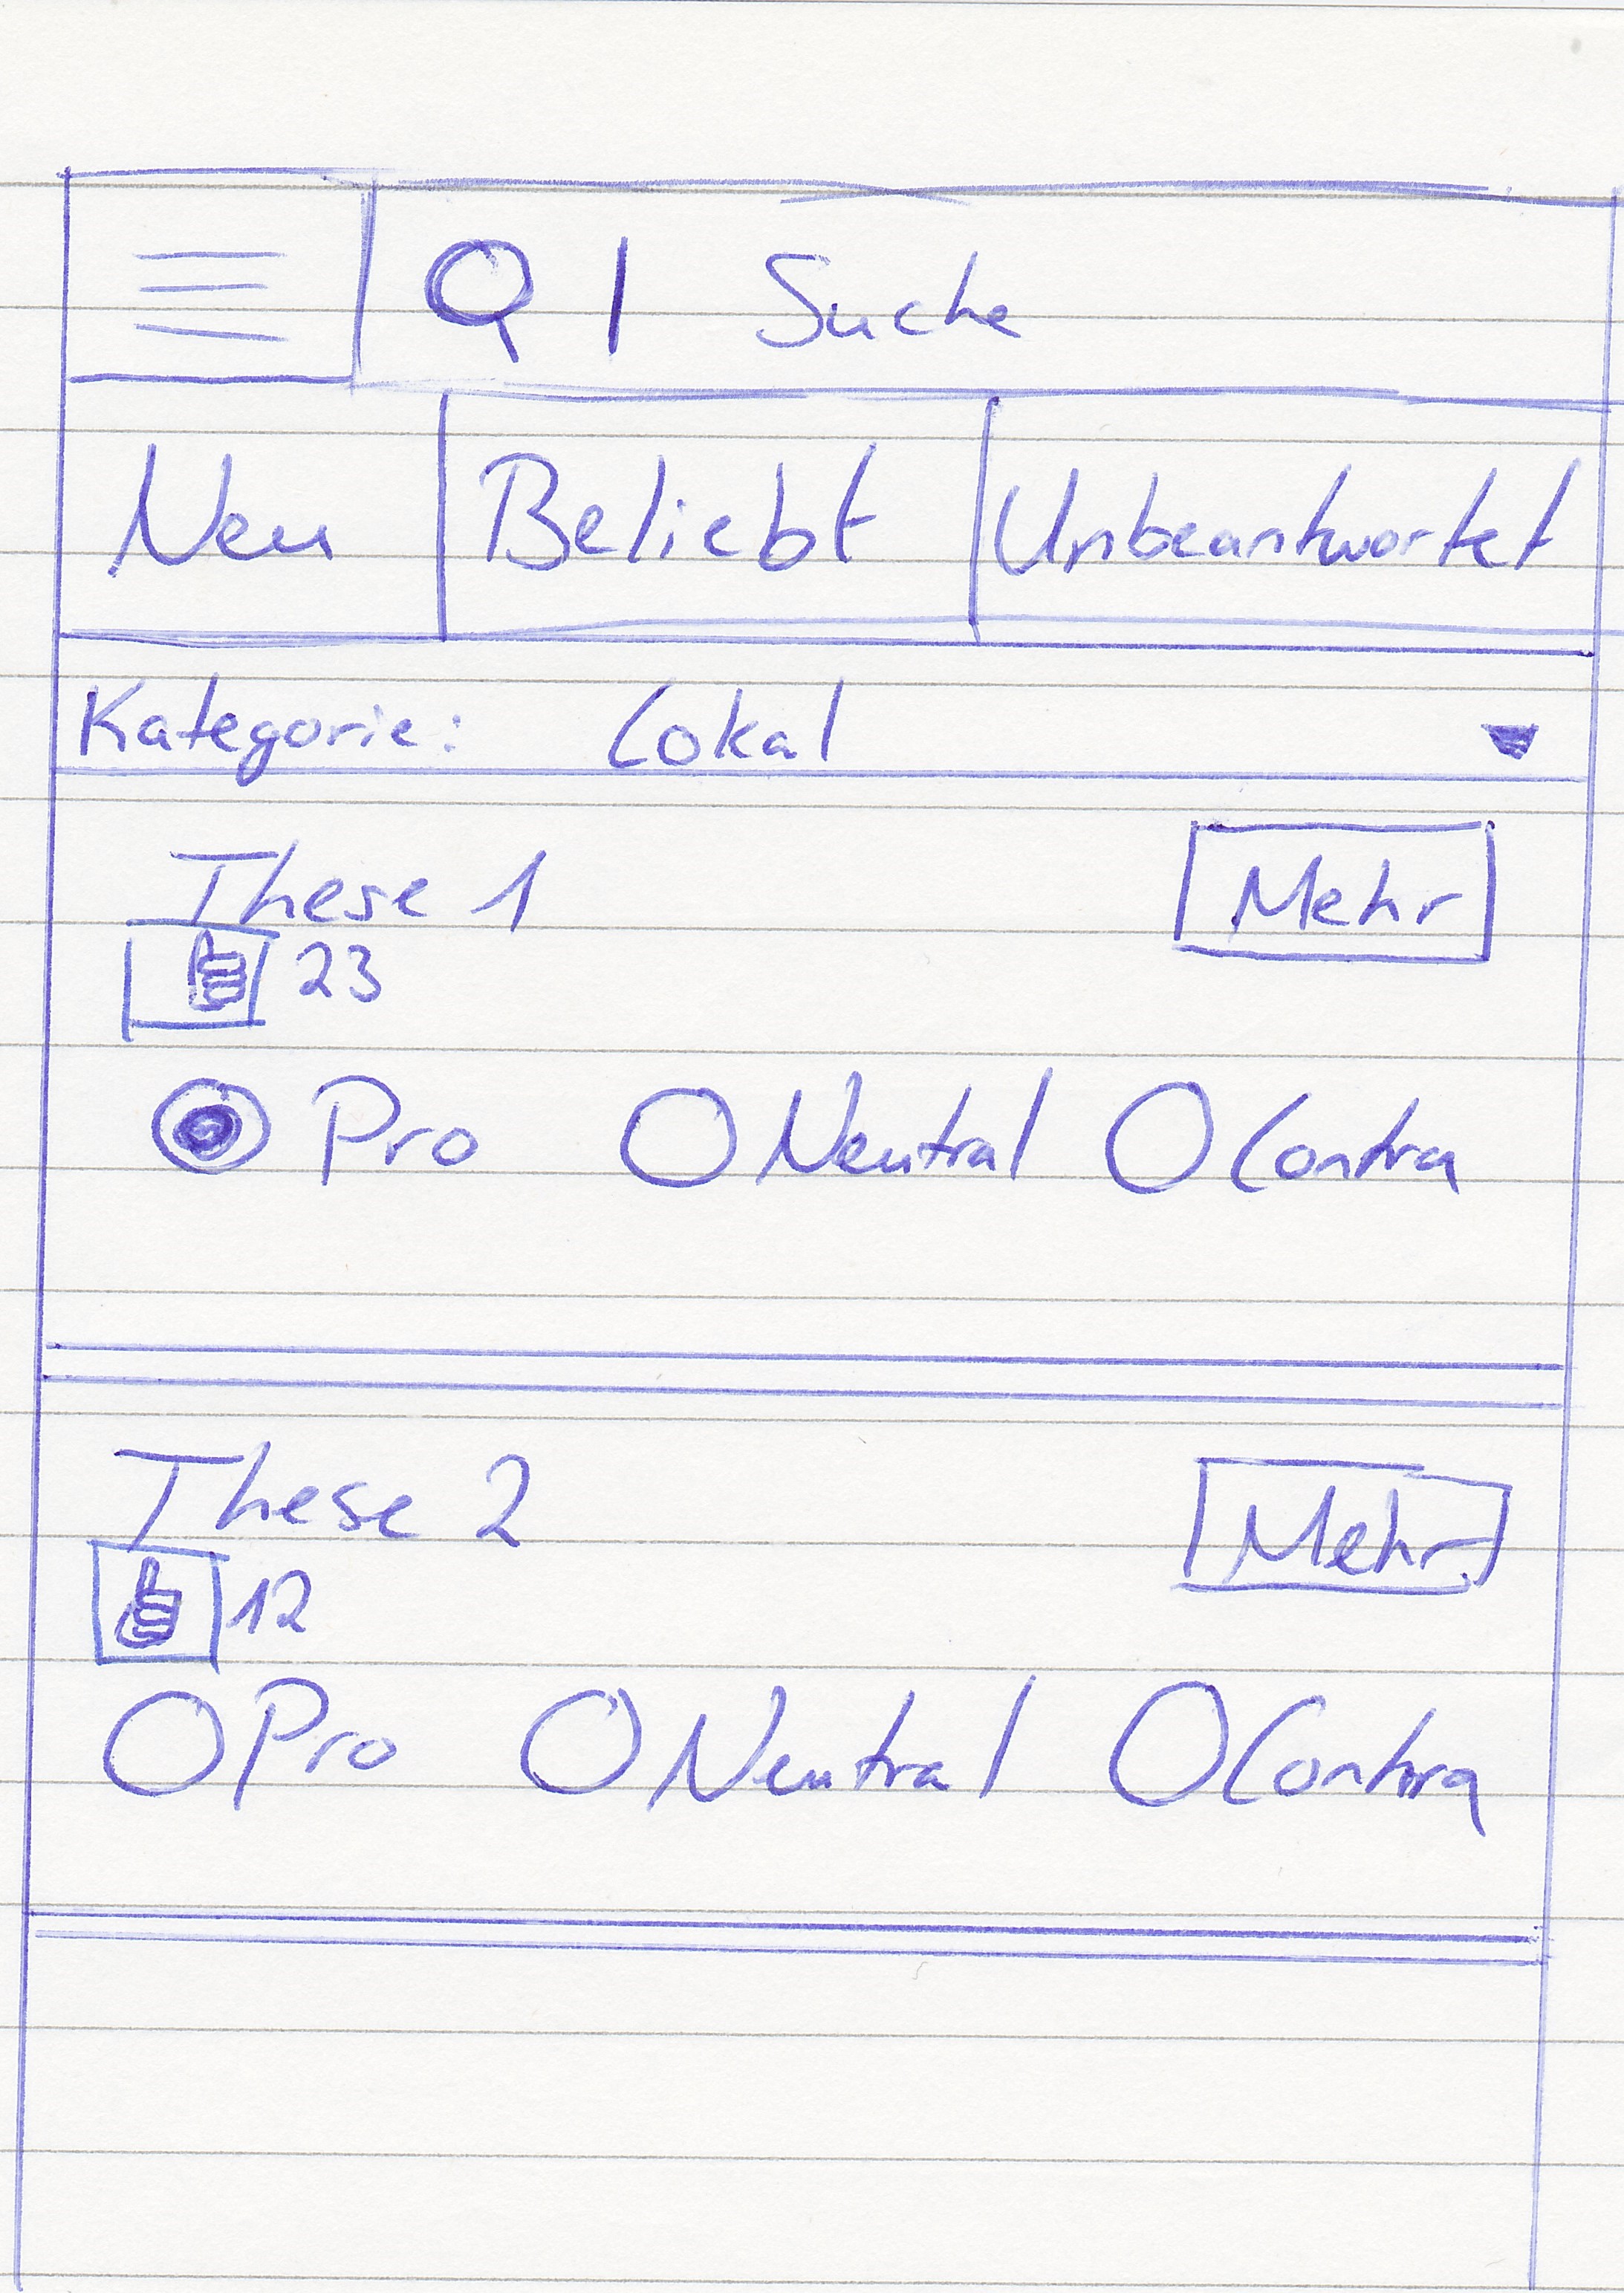 Suche
Neu Beliebt Unbeantwortet
Kategorie: Lokal
These 1 Mehr
23
Pro Neutral Contra
These 2 Mehr
12
Pro Neutral Contra